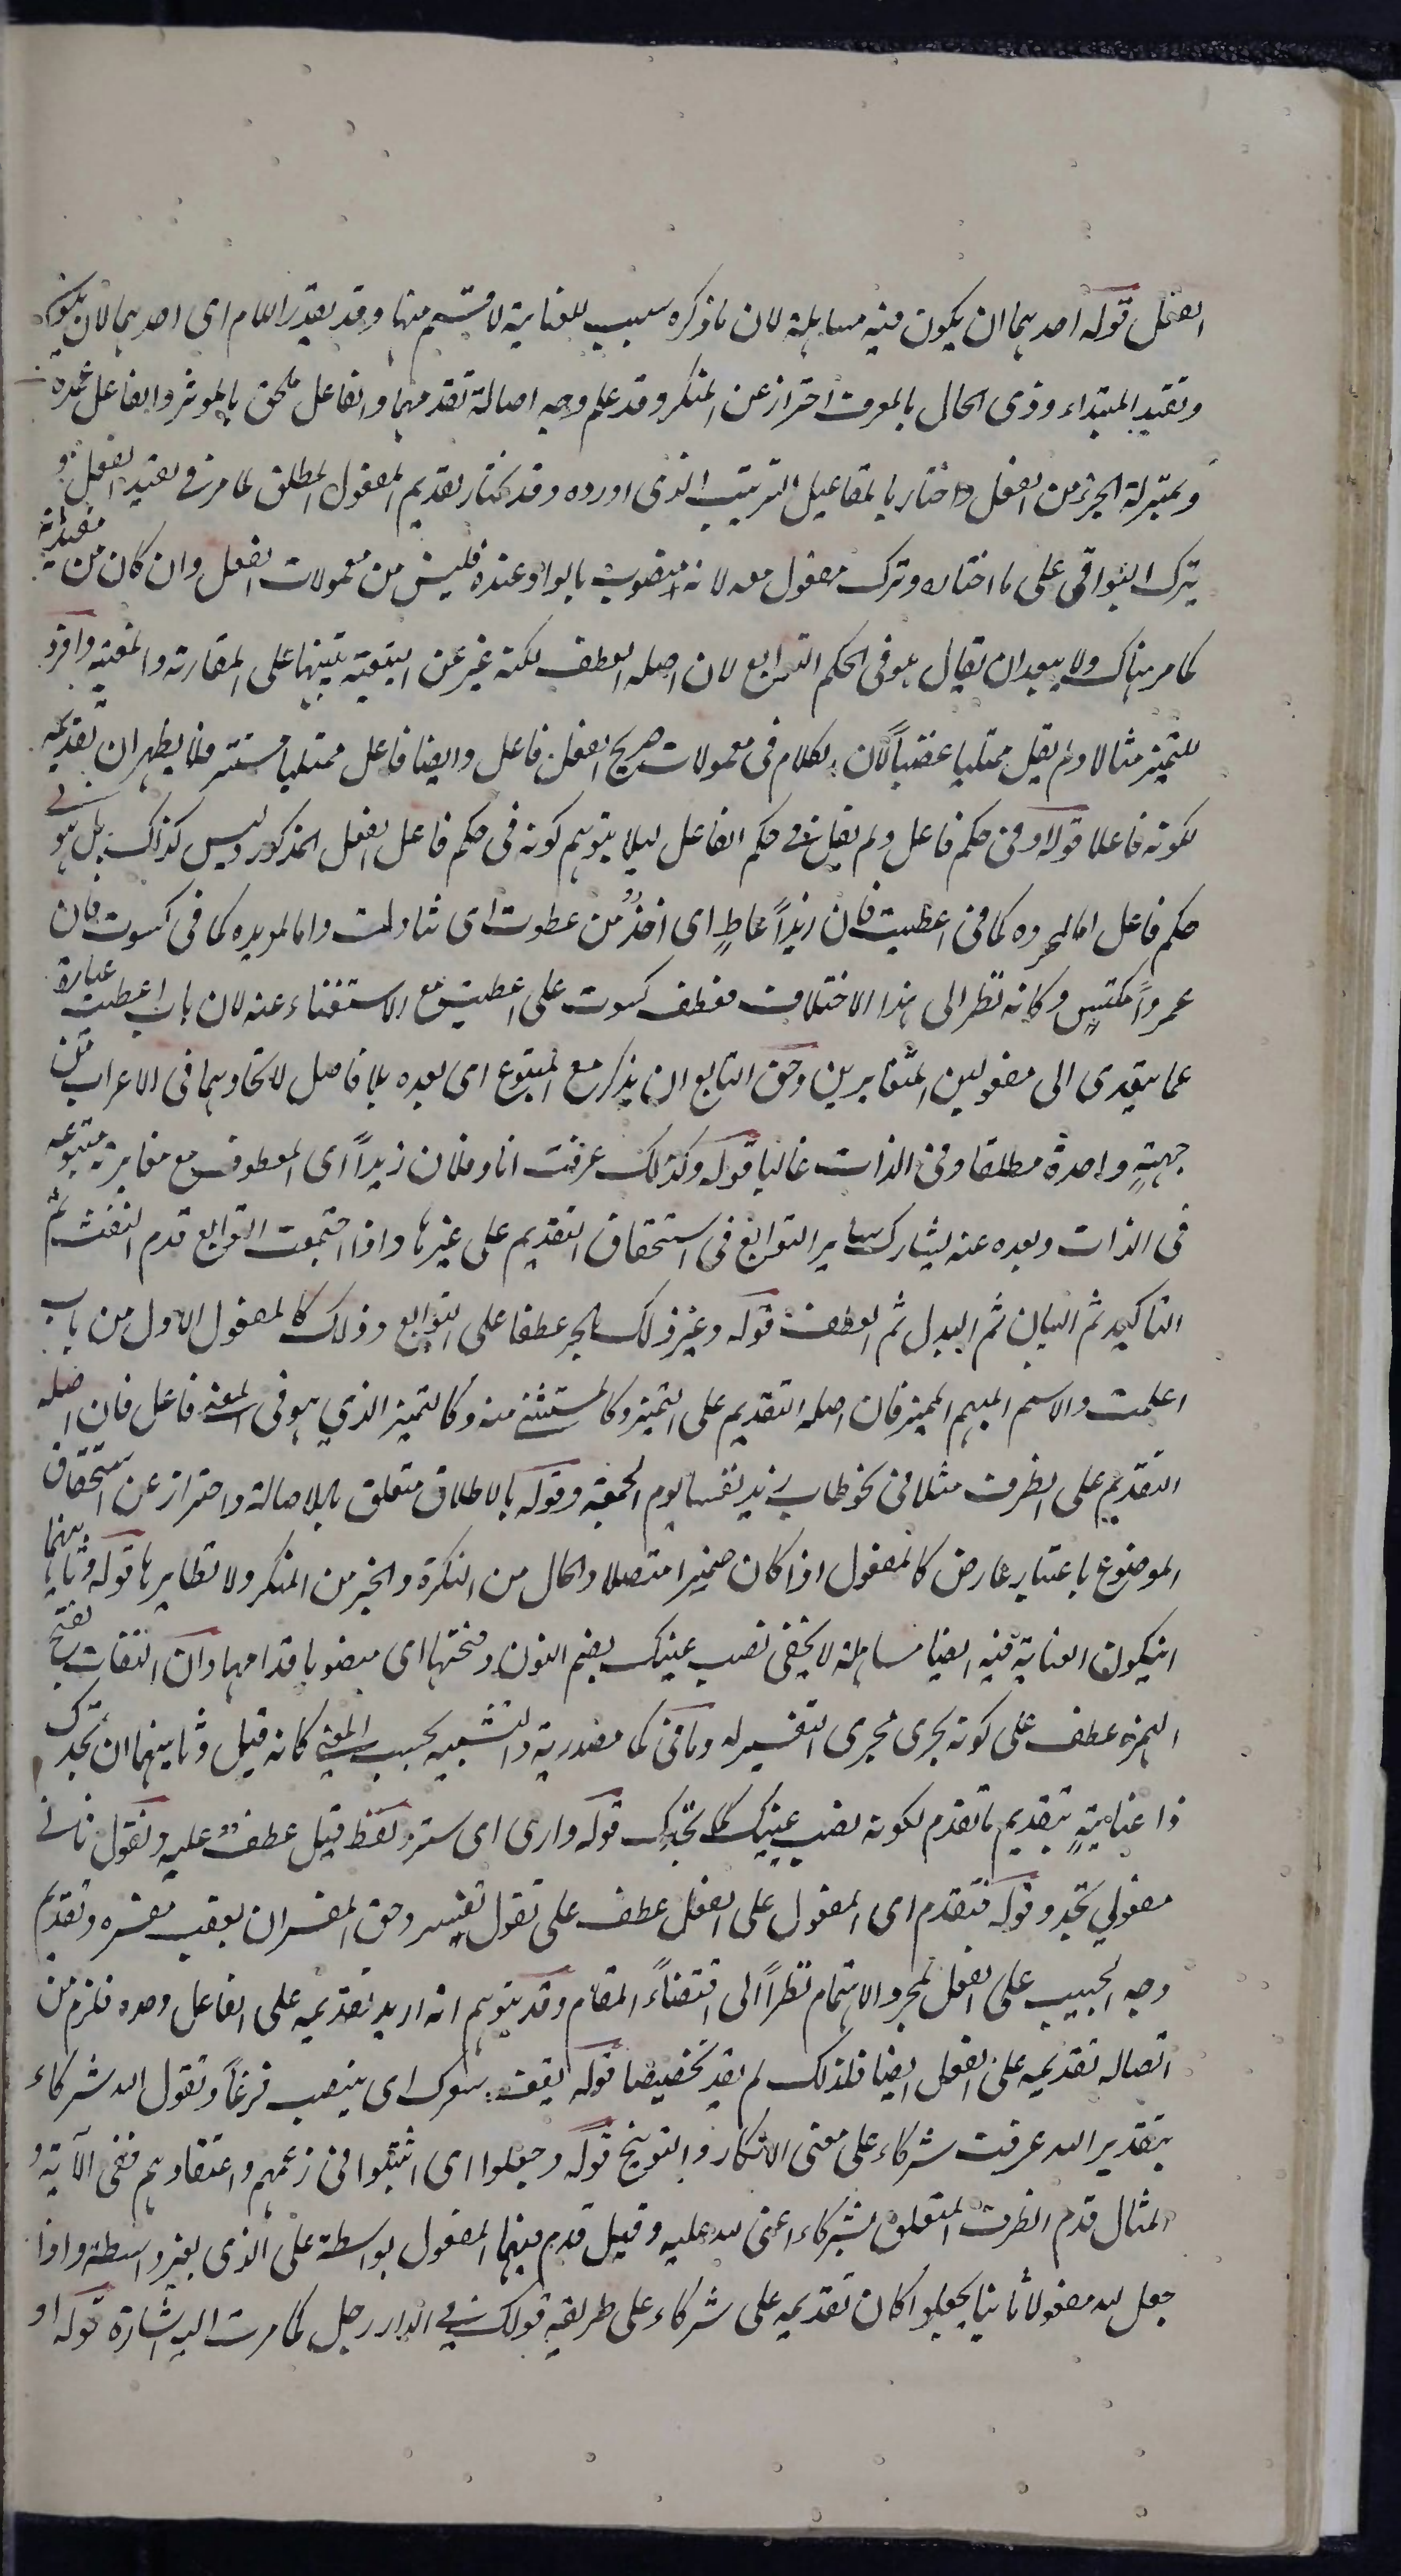 الفعل قوله احدهما ان يكون فيه مساهلة لان ما ذكره سبب للعناية لا قسم منها وقد يقدر اللام اى احدهما لان يكون
وتقييد المبتداء وذى الحال بالمعرف احتراز عن المنكر وقد علم وجه اصالة تقدمهما والفاعل ملحق بالموثر والفاعل عمدة
وبمنزلة الجزء من الفعل واختار بالمفاعيل الترتيب الذى اورده وقد يختار تقديم المفعول المطلق لما مر فى تقييد الفعل و
يترك البواقى على ما اختاره وترك مفعول معه لانه منصوب بالواو عنده فليس من معمولات الفعل وان كان من مقيداته
كما مر هناك ولا يبعد ان يقال هو فى الحكم التوابع لان اصله العطف لكنه غير عن التبعية تنبيها على المقارنة والمعية وافرد
للتميز مثالا ولم يقل ممتليا غضبا لان الكلام فى معمولات صريح الفعل فاعل وايضا فاعل ممتليا مستتر فلا يظهر ان تقديمه
لكونه فاعلا قوله او فى حكم فاعل ولم يقل فى حكم الفاعل ليلا يتوهم كونه فى حكم فاعل الفعل المذكور وليس كذلك بل هو فى
حكم فاعل اما لمجرده كما فى اعطيت فان زيداً عاطٍ اى اخذ من عطوت اى تناولت واما لمزيده كما فى كسوت فان
عمرواً مكتسٍ وكانه نظر الى هذا الاختلاف فعطف كسوت على اعطيت مع الاستغناء عنه لان باب اعطيت عبارة
عما يتعدى الى مفعولين المتغايرين وحق التابع ان يذكر مع المتبوع اى بعده بلا فاصل لاتحادهما فى الاعراب من
جهةٍ واحدة مطلقا وفى الذات غالبا قوله وكذلك عرفت انا وفلان زيداً اى المعطوف مع مغايرته متبوعه
فى الذات وبعده عنه يشارك ساير التوابع فى استحقاق التقديم على غيرها واذا اجتمعت التوابع قدم النعت ثم
التاكيد ثم البيان ثم البدل ثم العطف قوله وغير ذلك بالجر عطفا على التوابع وذلك كالمفعول الاول من باب
اعلمت والاسم المبهم المميز فان اصله التقديم على التميز وكالمستثنى منه وكالتميز الذي هو فى المعنى فاعل فان اصله
التقديم على الظرف مثلا فى نحو طاب زيد نفسا يوم الجمعة وقوله بالاطلاق متعلق بالاصالة واحتراز عن استحقاق
الموضوع باعتبار عارض كالمفعول اذا كان ضميرا متصلا والحال من النكرة والخبر من المنكر ولا نظايرها قوله وثانيهما
ان يكون العناية فيه ايضا مساهلة لا يخفى نصب عينك بضم النون وفتحها اى منصوبا قدامها وان التفات بفتح
الهمزة عطف على كونه يجرى مجرى التفسير له وما فى كما مصدرية والتشبيه بحسب المعنى كانه قيل وثانيهما ان تجدك
ذا عنايةٍ بتقديم ما تقدم لكونه نصب عينك كما تجدك قوله وارى اى ستر ولفظ قيل عطف عليه وتقول ثانى
مفعولي تجد وقوله فتقدم اى المفعول على الفعل عطف على تقول تفسير وحق المفسر ان يعقب مفسره وتقديم
وجه الحبيب على الفعل لمجرد الاهتمام نظراً الى اقتضاء المقام وقد يتوهم انه اريد تقديمه على الفاعل وحده فلزم من
اتصاله تقديمه على الفعل ايضا فلذلك لم يفد تخصيصا قوله يقف شعرك اى ينصب فزعاً وتقول الله شركاء
بتقدير الله عرفت شركاء على معنى الانكار والتوبيخ قوله وجعلوا اى اثبتوا فى زعمهم واعتقادهم ففى الآية و
المثال قدم الظرف المتعلق بشركاء اعنى لله عليه وقيل قدم فيهما المفعول بواسطة على الذى بغير واسطة واذا
جعل لله مفعولا ثانيا لجعلوا كان تقديمه على شركاء على طريقة قولك فى الدار رجل كما مرت اليه اشارة قوله او